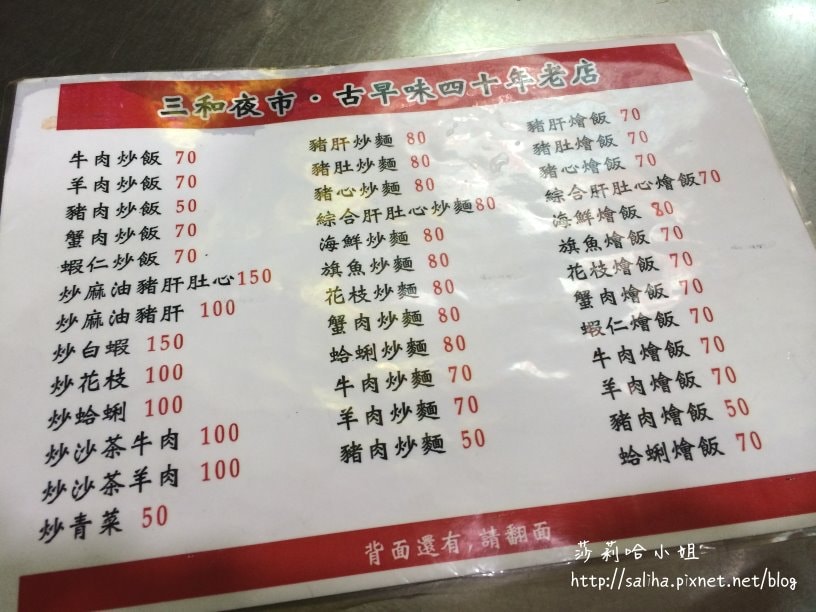 三和夜市·古早味四十年老店
牛肉炒飯 70
羊肉炒飯 70
豬肉炒飯 50
蟹肉炒飯 70
蝦仁炒飯 70
炒麻油豬肝肚心150
炒麻油豬肝 100
炒白蝦 150
炒花枝 100
炒蛤蜊 100
炒沙茶牛肉 100
炒沙茶羊肉 100
炒青菜 50
豬肝炒麵 80
豬肚炒麵 80
豬心炒麵 80
綜合肝肚心炒麵80
海鮮炒麵 80
旗魚炒麵 80
花枝炒麵 80
蟹肉炒麵 80
蛤蜊炒麵 80
牛肉炒麵 70
羊肉炒麵 70
豬肉炒麵 50
豬肝燴飯 70
豬肚燴飯 70
豬心燴飯 70
綜合肝肚心燴飯70
海鮮燴飯 80
旗魚燴飯 70
花枝燴飯 70
蟹肉燴飯 70
蝦仁燴飯 70
牛肉燴飯 70
羊肉燴飯 70
豬肉燴飯 50
蛤蜊燴飯 70
背面還有,請翻面
莎莉哈小姐
http://saliha.pixnet.net/blog